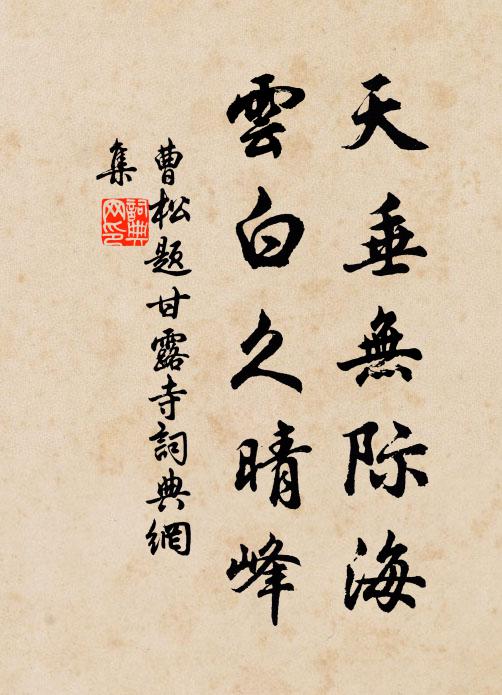 天垂無际海
雲白久晴峰
曹松题甘露寺詞典網
集
詞典网印